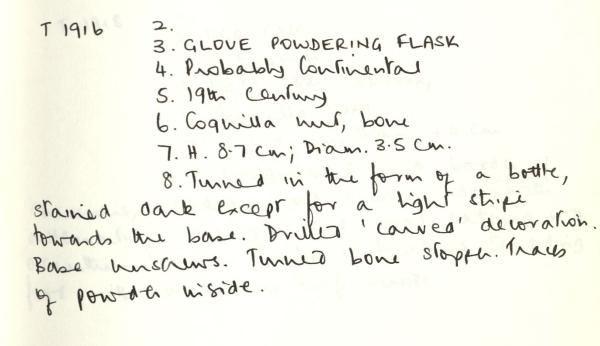 T 1916 2.
3. GLOVE POWDERING FLASK
4. Probably Continental
5. 19th Century
6. Coquilla nut, bone
7. H. 8.7 cm; Diam. 3.5 cm.
8. Turned in the form of a bottle,
stained dark except for a light stripe
towards the base. Drilled 'carved' decoration.
Base unscrews. Turned bone stopper. Traces
of powder inside.